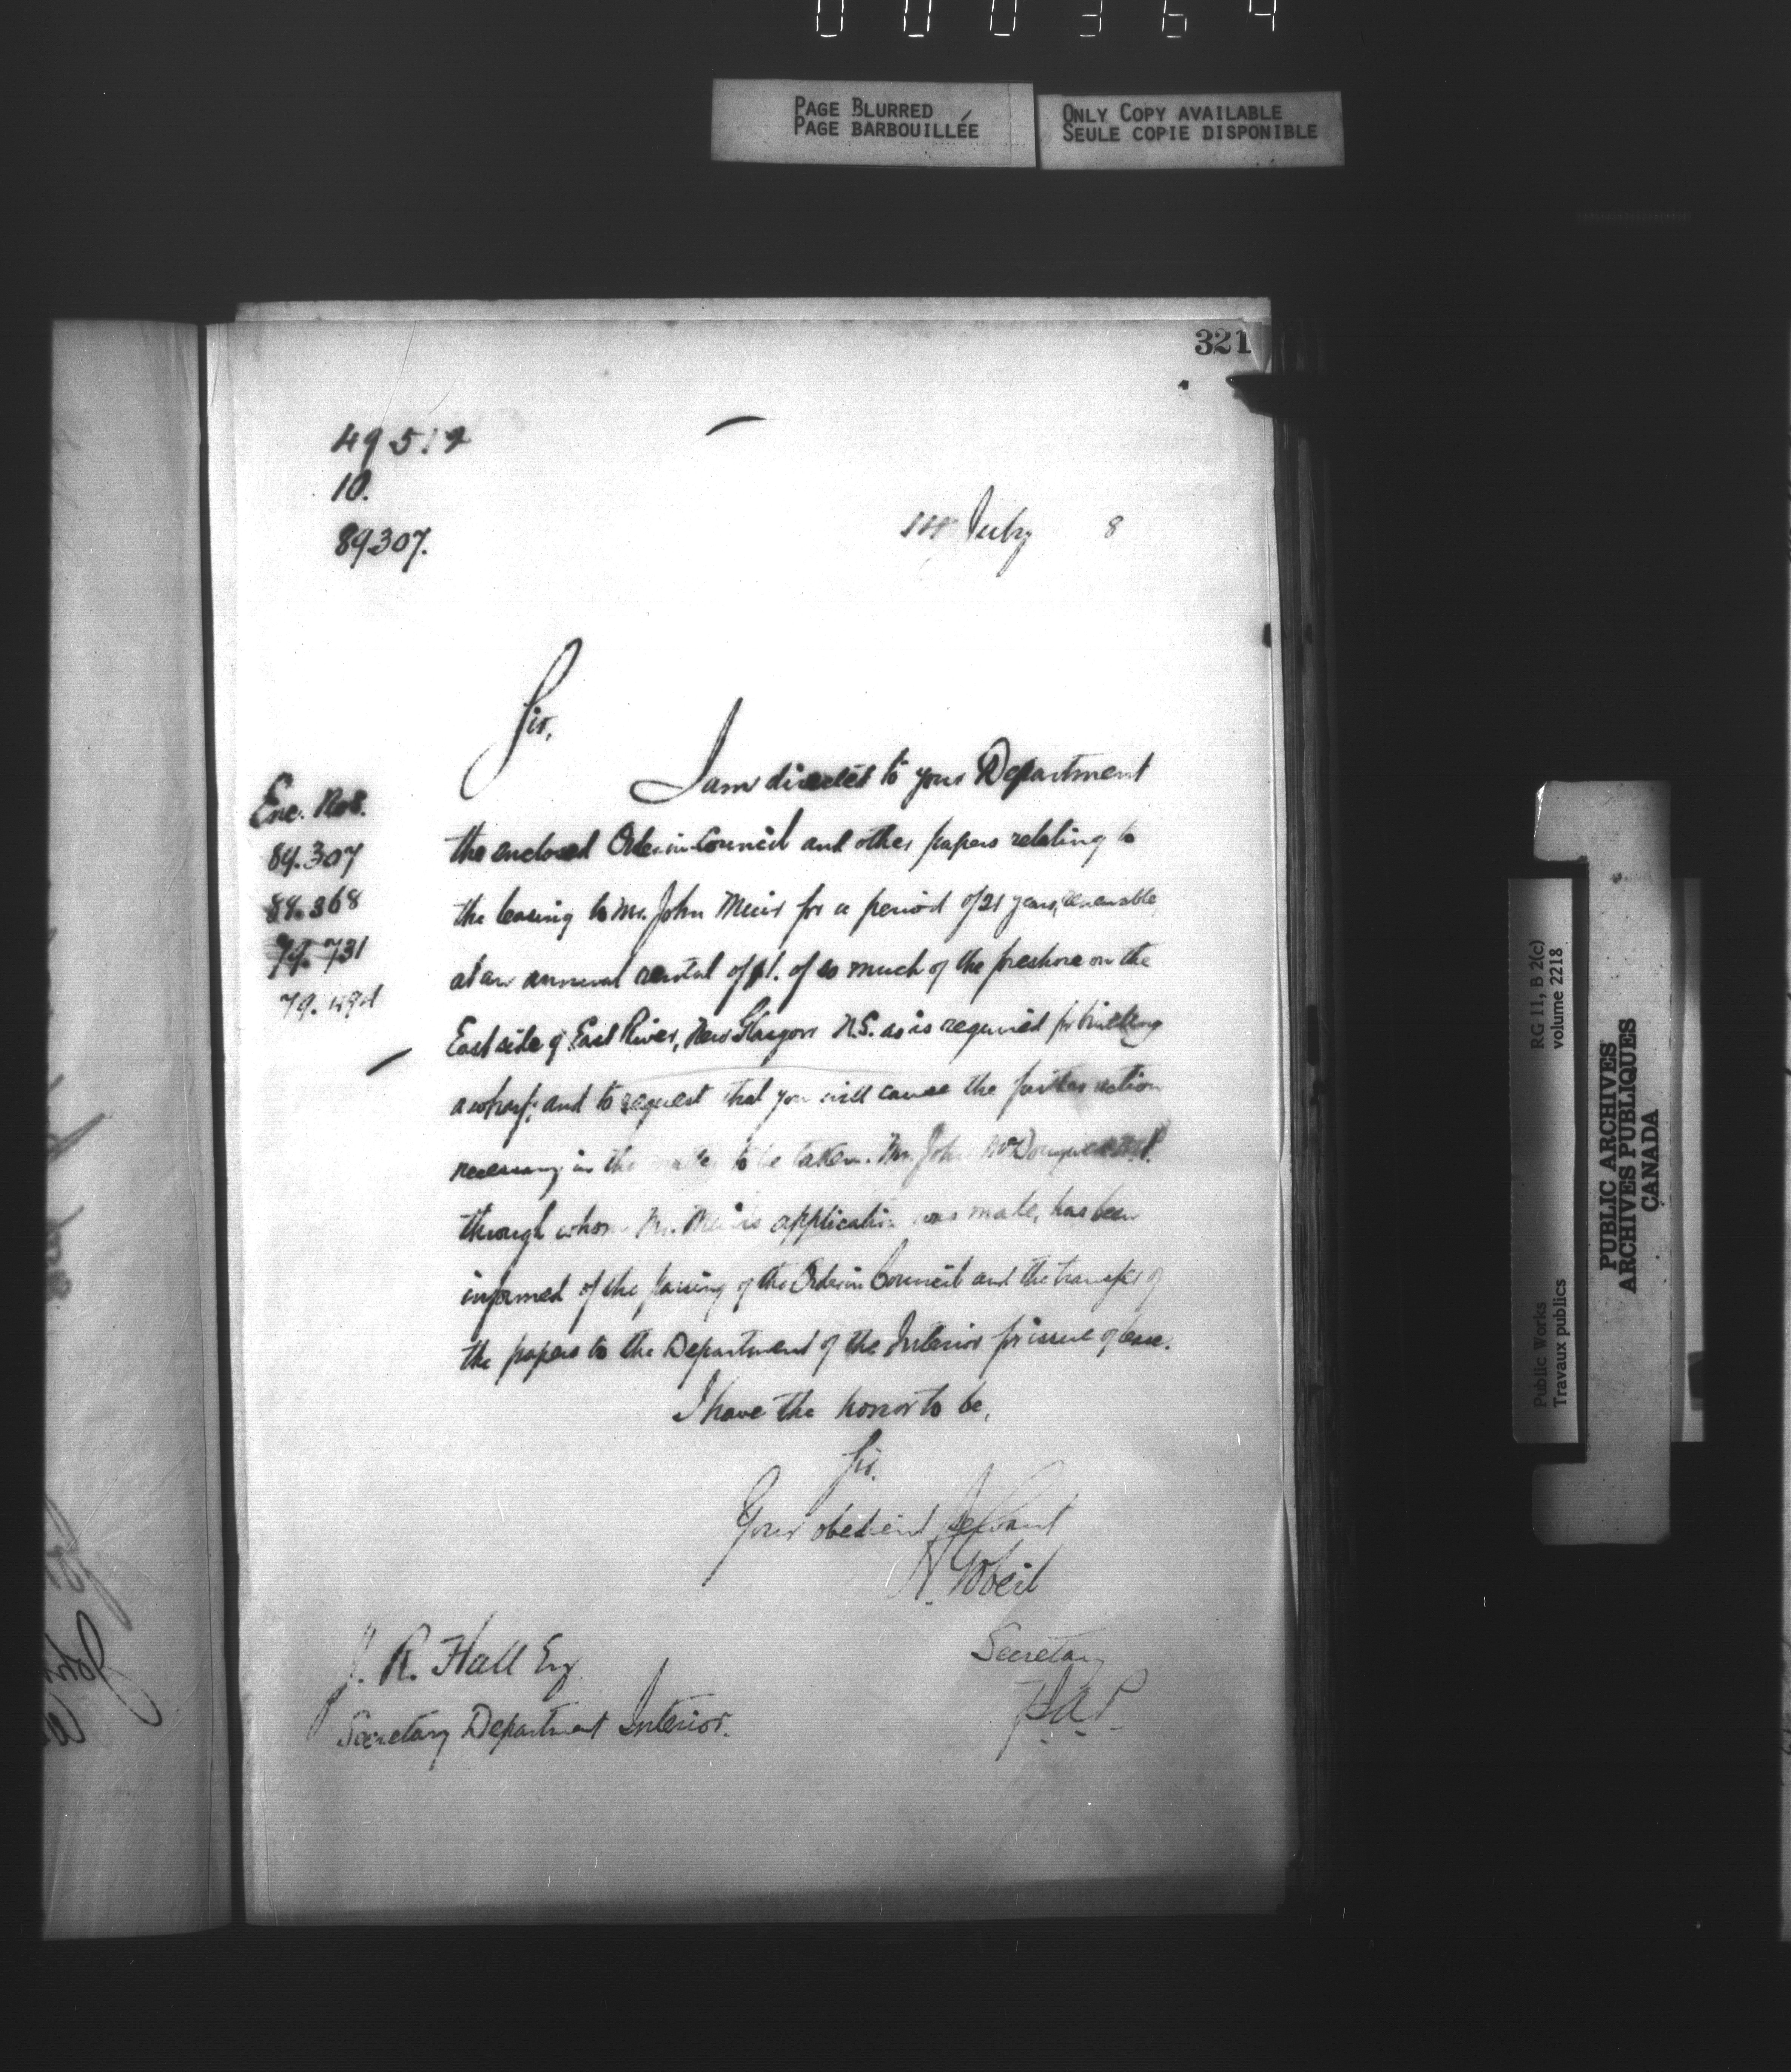 000364
PAGE BLURRED
PAGE BARBOUILLÉE
ONLY COPY AVAILABLE
SEULE COPIE DISPONIBLE
321
10.
89307.
July 8
Sir,
I am directed to your Department
the enclosed Order in Council and other papers relating to
the leasing to Mr. John Muir for a period of 21 years, renewable,
at an annual rental of $1. of so much of the foreshore on the
East side of East River, New Glasgow N.S. as is required for building
a wharf; and to request that you will cause the further action
necessary in the matter to be taken. Mr. John McDougald M.P.
through whom Mr. Muir's application was made, has been
informed of the passing of the Order in Council and the transfer of
the papers to the Department of the Interior for issue of lease.
I have the honor to be,
Sir.
Your obedient Servant
A. Gobeil
Secretary
Enc. Nos.
89.307
88.368
79.731
J. R. Hall Esq
Secretary Department Interior.
RG 11, B 2(c)
volume 2218
Public Works
Travaux publics
PUBLIC ARCHIVES
ARCHIVES PUBLIQUES
CANADA